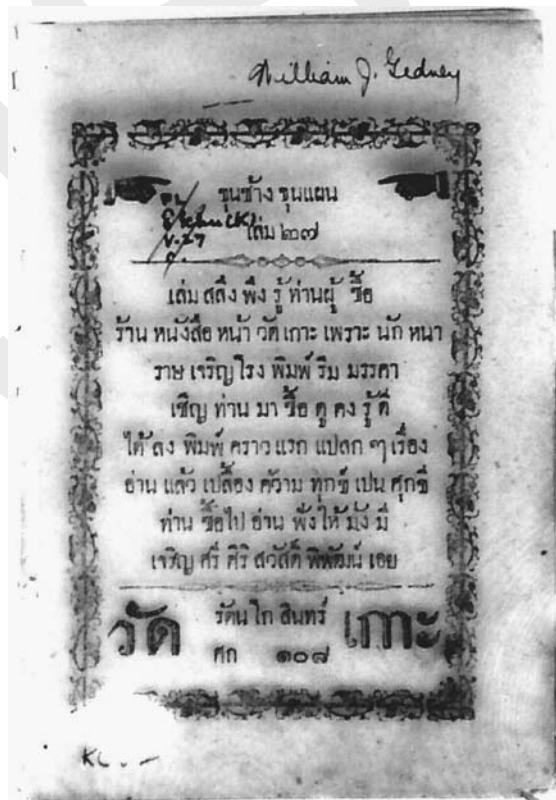 William J. Gedney
ขุนช้าง ขุนแผน
เล่ม ๒๗
V.27
เล่ม สลึง พึง รู้ ท่านผู้ ซื้อ
ร้าน หนังสือ หน้า วัดเกาะ เพราะ นัก หนา
ราษ เจริญ โรง พิมพ์ ริม มรรคา
เชิญ ท่าน มา ซื้อ ดู คง รู้ ดี
ได้ ลง พิมพ์ คราว แรก แปลก ๆ เรื่อง
อ่าน แล้ว เปลื้อง ความ ทุกข์ เปน ศุกขี
ท่าน ซื้อไป อ่าน ฟังให้ มั่ง มี
เจริญ ศรี ศิริ สวัสดิ์ พิพัฒน์ เอย
วัด รัตนโก สินทร์ เกาะ
ศก ๑๐๘